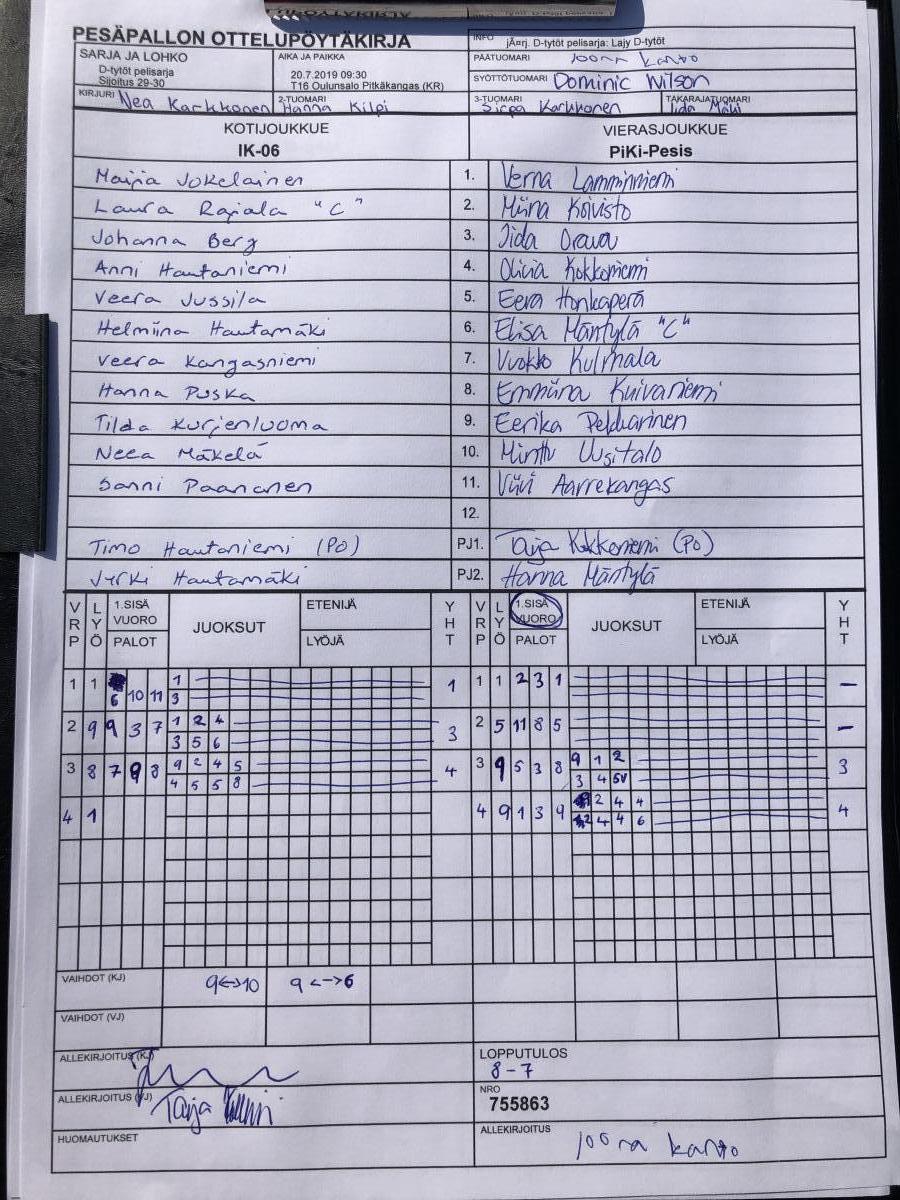 PESÄPALLON OTTELUPÖYTÄKIRJA
INFO jÄ¤rj. D-tytöt pelisarja: Lajy D-tytöt
SARJA JA LOHKO
D-tytöt pelisarja
Sijoitus 29-30
AIKA JA PAIKKA
20.7.2019 09:30
T16 Oulunsalo Pitkäkangas (KR)
PÄÄTUOMARI Joona Kanto
SYÖTTÖTUOMARI Dominic Wilson
KIRJURI Nea Karkkonen
2-TUOMARI Hanna Kilpi
3-TUOMARI Sirpa Karkkonen
TAKARAJATUOMARI Iida Mäki
KOTIJOUKKUE
IK-06
VIERASJOUKKUE
PiKi-Pesis
Maija Jokelainen 1. Verna Lamminniemi
Laura Rajala "C" 2. Miina Koivisto
Johanna Berg 3. Iida Orava
Anni Hautaniemi 4. Olivia Kokkoniemi
Veera Jussila 5. Eera Honkaperä
Helmiina Hautamäki 6. Elisa Mäntylä "C"
Veera Kangasniemi 7. Vuokko Kulmala
Hanna Puska 8. Emmiina Kuivaniemi
Tilda Kurjenluoma 9. Eerika Pekkarinen
Neea Mäkelä 10. Minttu Uusitalo
Sanni Paananen 11. Viivi Aarrekangas
12.
Timo Hautaniemi (PO) PJ1. Taija Kokkoniemi (PO)
Jyrki Hautamäki PJ2. Hanna Mäntylä
VRP LYÖ 1.SISÄ VUORO PALOT JUOKSUT ETENIJÄ LYÖJÄ YHT VRP LYÖ 1.SISÄ VUORO PALOT JUOKSUT ETENIJÄ LYÖJÄ YHT
1 1 6 10 11 1 1 1 1 2 3 1 –
3
2 9 9 3 7 1 2 4 3 2 5 11 8 5 –
3 5 6
3 8 7 9 8 9 2 4 5 4 3 9 5 3 8 9 1 2 3
4 5 5 8 3 4 5V
4 1 4 9 1 3 9 2 4 4 4
2 4 4 6
VAIHDOT (KJ) 9<->10 9<-->6
VAIHDOT (VJ)
ALLEKIRJOITUS (KJ)
LOPPUTULOS
8-7
ALLEKIRJOITUS (VJ) Taija
NRO
755863
HUOMAUTUKSET
ALLEKIRJOITUS
Joona Kanto